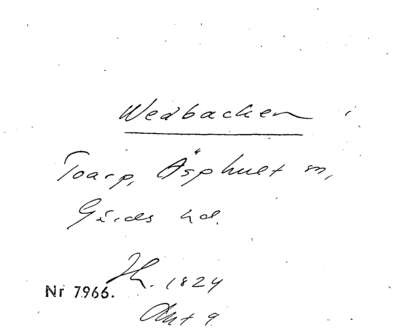 Wedbacken i
Toarp, Äsphult sn,
Gärds hd.
1824
Nr 7966.
Akt 9